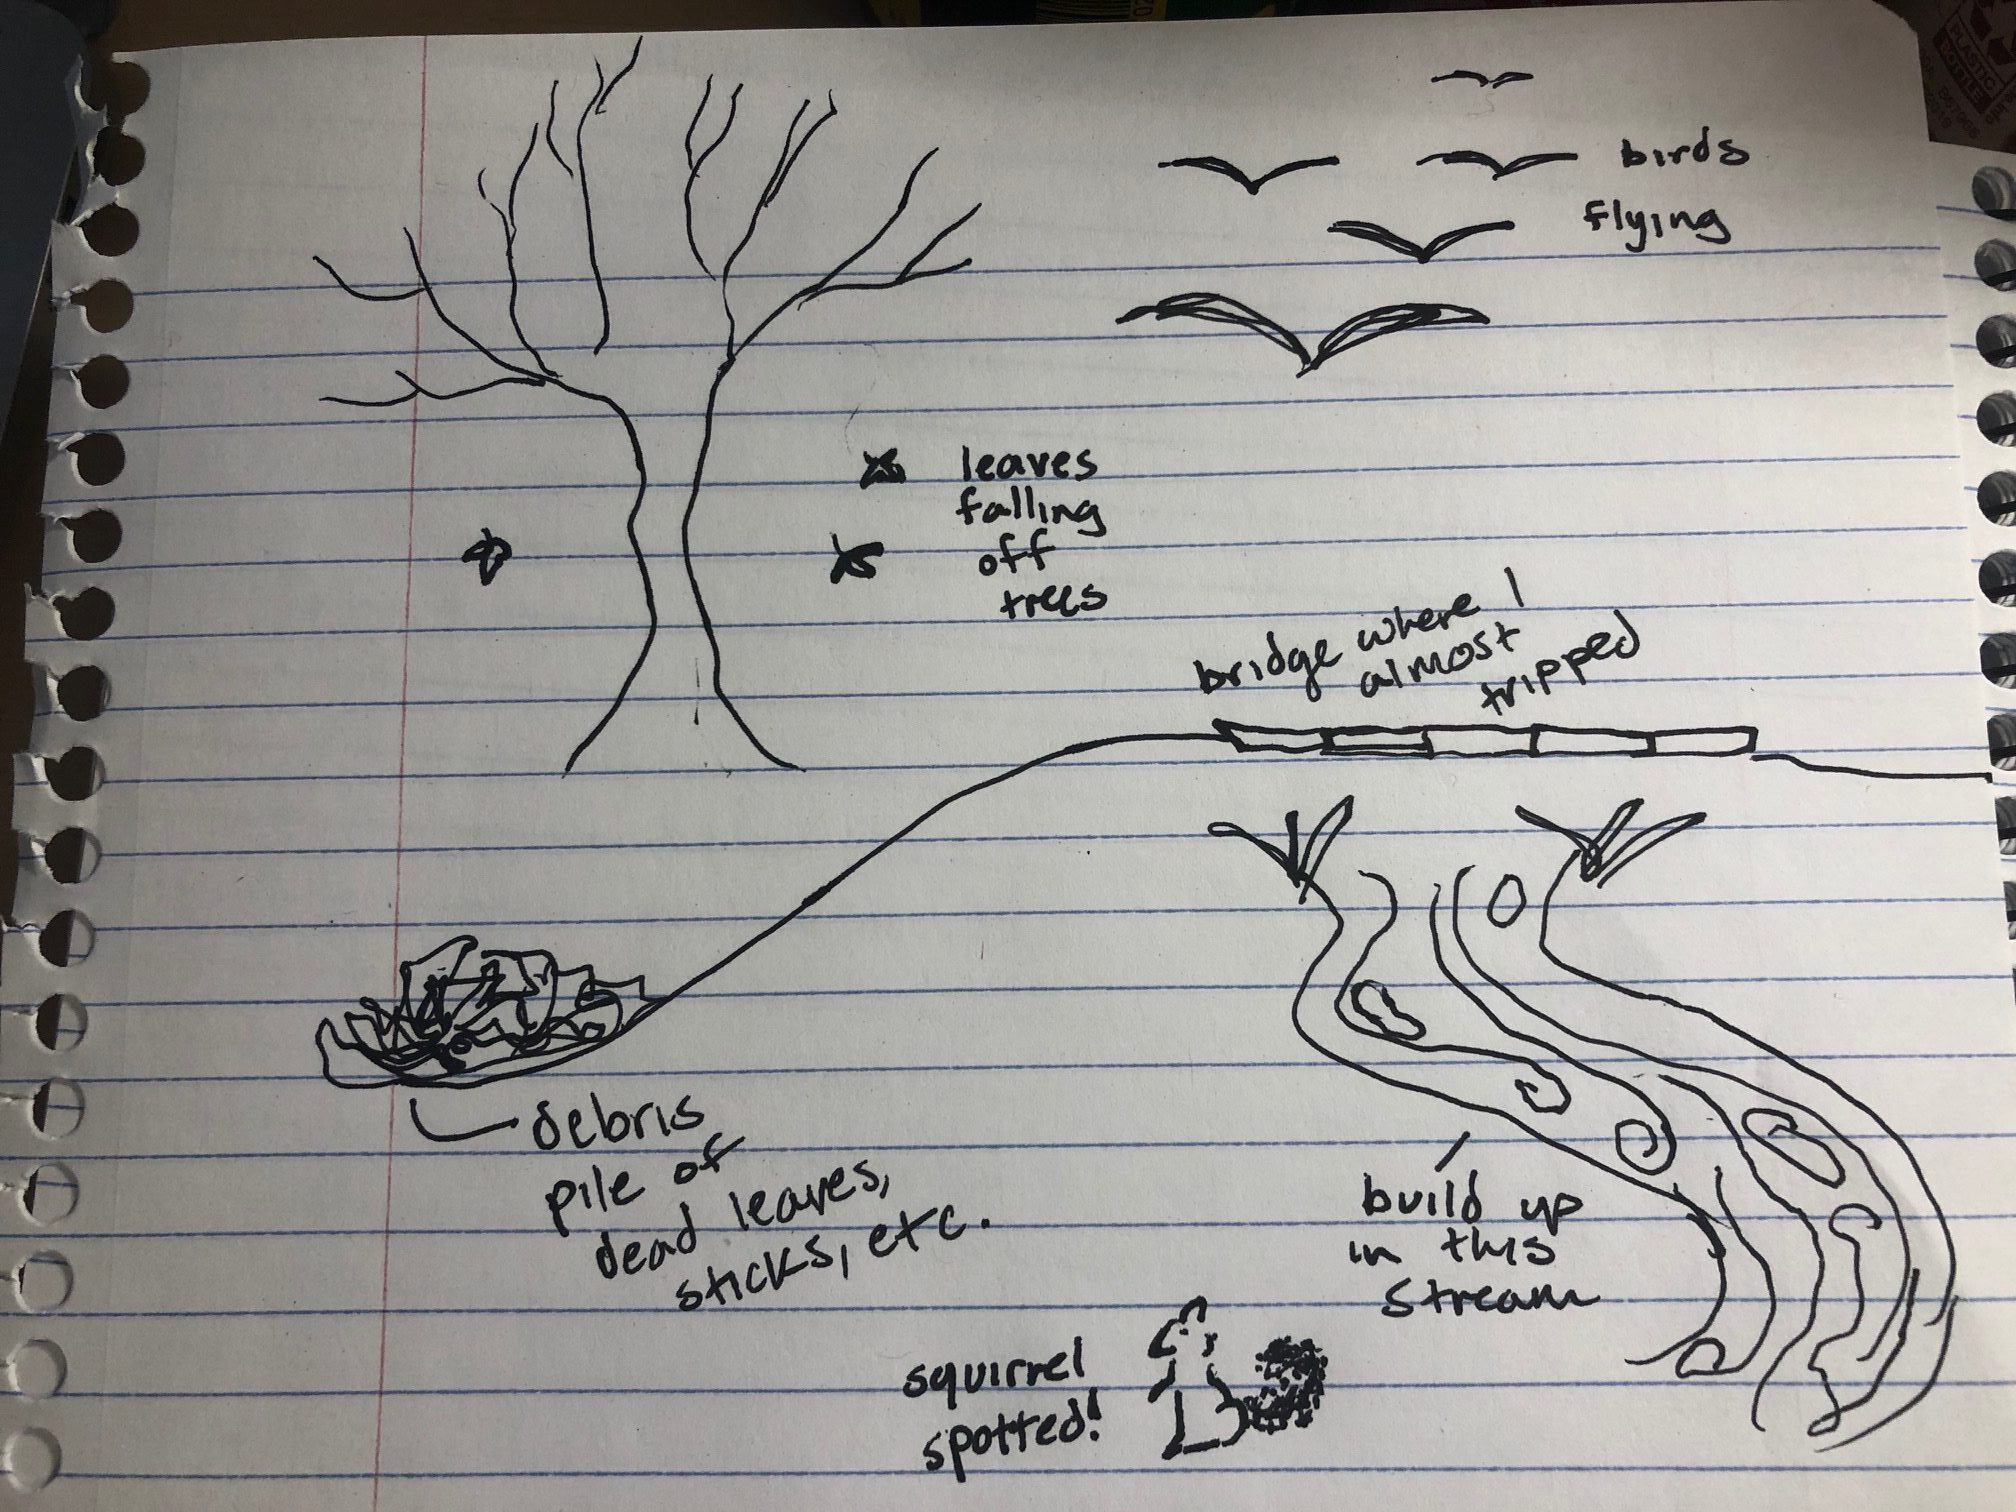 birds
flying
leaves
falling
off
trees
bridge where I
almost
tripped
debris
pile of
dead leaves,
sticks, etc.
build up
in this
stream
squirrel
spotted!
PLASTIC
BOTTLE